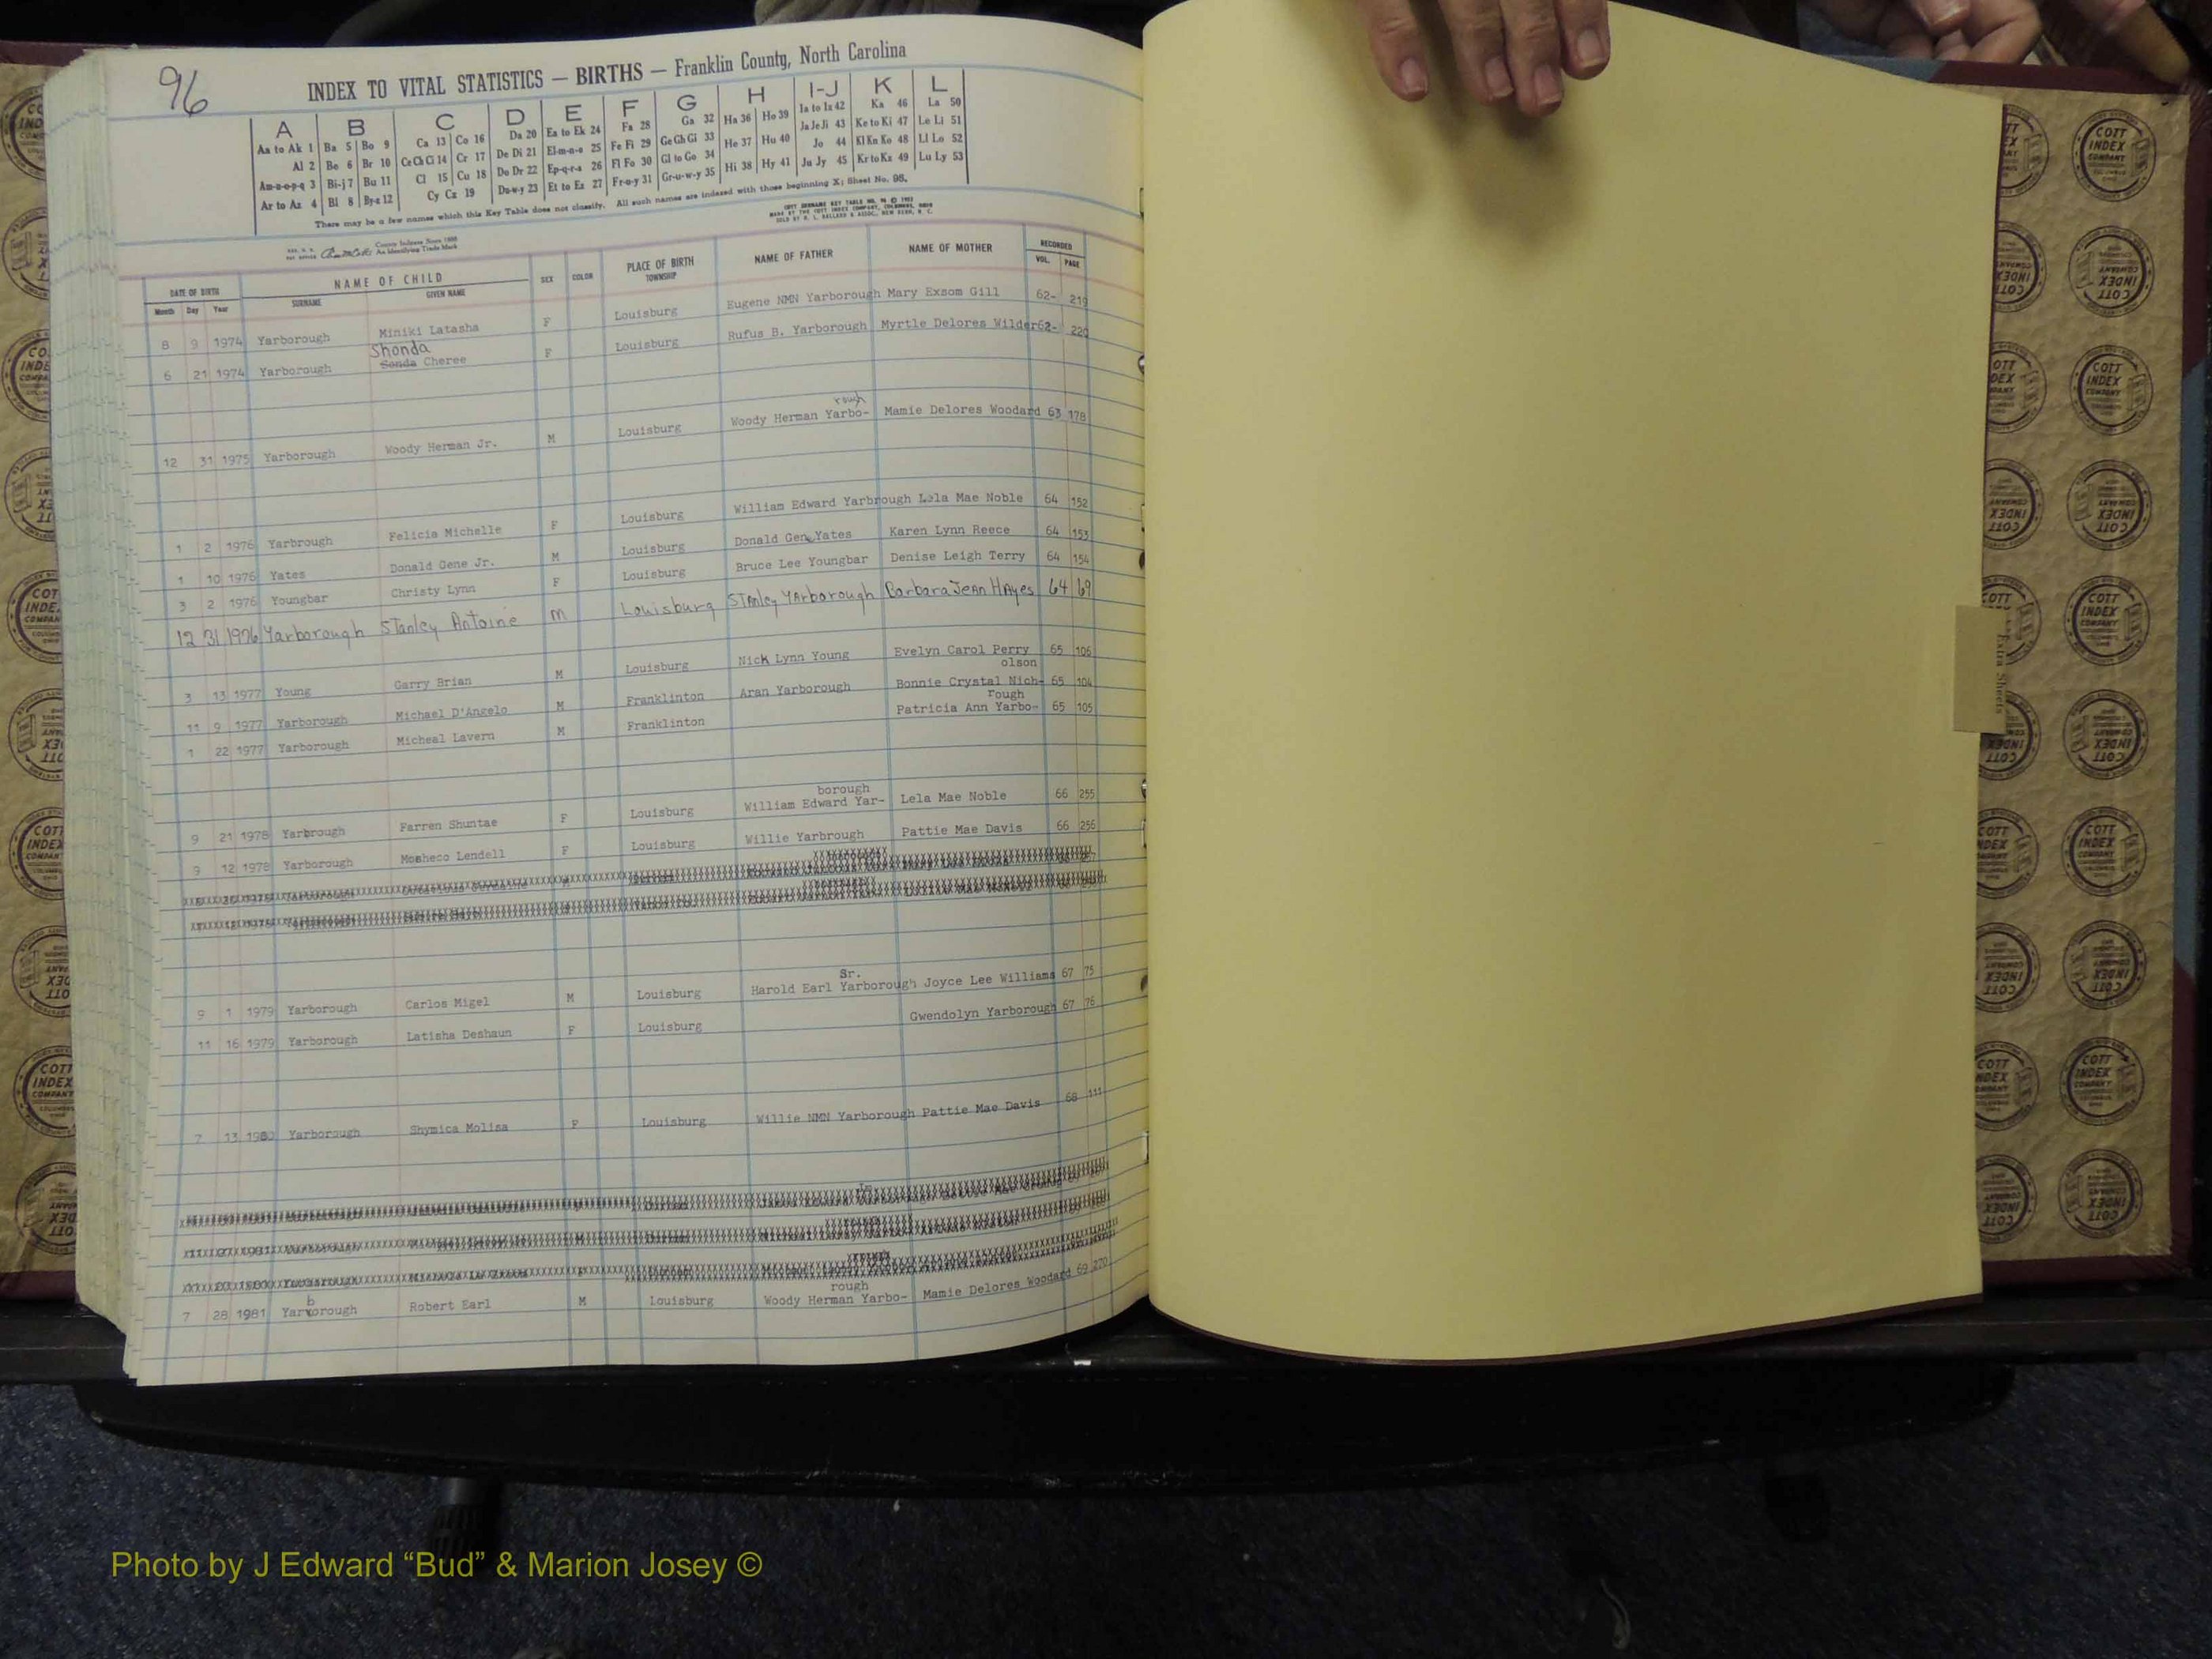 96
INDEX TO VITAL STATISTICS — BIRTHS — Franklin County, North Carolina
A B C D E F G H I-J K L
Aa to Ak 1 Ba 5 Bo 9 Ca 13 Co 16 Da 20 Ea to Ek 24 Fa 28 Ga 32 Ha 36 Ho 39 Ia to Iz 42 Ka 46 La 50
Al 2 Be 6 Br 10 Ce Ch Ci 14 Cr 17 De Di 21 El-m-n-o 25 Fe Fi 29 Ge Gh Gi 33 He 37 Hu 40 Ja Je Ji 43 Ke to Ki 47 Le Li 51
Am-n-o-p-q 3 Bi-j 7 Bu 11 Cl 15 Cu 18 Do Dr 22 Ep-q-r-s 26 Fl Fo 30 Gl to Go 34 Hi 38 Hy 41 Jo 44 Kl Kn Ko 48 Ll Lo 52
Ar to Az 4 Bl 8 By-z 12 Cy Cz 19 Du-w-y 23 Et to Ez 27 Fr-u-y 31 Gr-u-w-y 35 Ju Jy 45 Kr to Kz 49 Lu Ly 53
There may be a few names which this Key Table does not classify. All such names are indexed with those beginning X; Sheet No. 98.
County Indexes Since 1888
An Identifying Trade Mark
DATE OF BIRTH NAME OF CHILD SEX COLOR PLACE OF BIRTH NAME OF FATHER NAME OF MOTHER RECORDED
Month Day Year SURNAME GIVEN NAME TOWNSHIP VOL. PAGE
8 9 1974 Yarborough Miniki Latasha F Louisburg Eugene NMN Yarborough Mary Exsom Gill 62- 219
Shonda
6 21 1974 Yarborough Sonda Cheree F Louisburg Rufus B. Yarborough Myrtle Delores Wilder 62- 220
rough
12 31 1975 Yarborough Woody Herman Jr. M Louisburg Woody Herman Yarbo- Mamie Delores Woodard 63 178
1 2 1976 Yarbrough Felicia Michelle F Louisburg William Edward Yarbrough Lela Mae Noble 64 152
1 10 1976 Yates Donald Gene Jr. M Louisburg Donald Gene Yates Karen Lynn Reece 64 153
3 2 1976 Youngbar Christy Lynn F Louisburg Bruce Lee Youngbar Denise Leigh Terry 64 154
12 31 1976 Yarborough Stanley Antoine M Louisburg Stanley Yarborough Barbara Jean Hayes 64 169
3 13 1977 Young Garry Brian M Louisburg Nick Lynn Young Evelyn Carol Perry 65 106
olson
11 9 1977 Yarborough Michael D'Angelo M Franklinton Aran Yarborough Bonnie Crystal Nich- 65 104
rough
1 22 1977 Yarborough Micheal Lavern M Franklinton Patricia Ann Yarbo- 65 105
borough
9 21 1978 Yarbrough Farren Shuntae F Louisburg William Edward Yar- Lela Mae Noble 66 255
9 12 1978 Yarborough Mosheco Lendell F Louisburg Willie Yarbrough Pattie Mae Davis 66 256
Sr.
9 1 1979 Yarborough Carlos Migel M Louisburg Harold Earl Yarborough Joyce Lee Williams 67 75
11 16 1979 Yarborough Latisha Deshaun F Louisburg Gwendolyn Yarborough 67 76
7 13 1980 Yarborough Shymica Molisa F Louisburg Willie NMN Yarborough Pattie Mae Davis 68 111
b rough
7 28 1981 Yarborough Robert Earl M Louisburg Woody Herman Yarbo- Mamie Delores Woodard 69 270
Extra Sheets
COTT INDEX COMPANY
Photo by J Edward “Bud” & Marion Josey ©